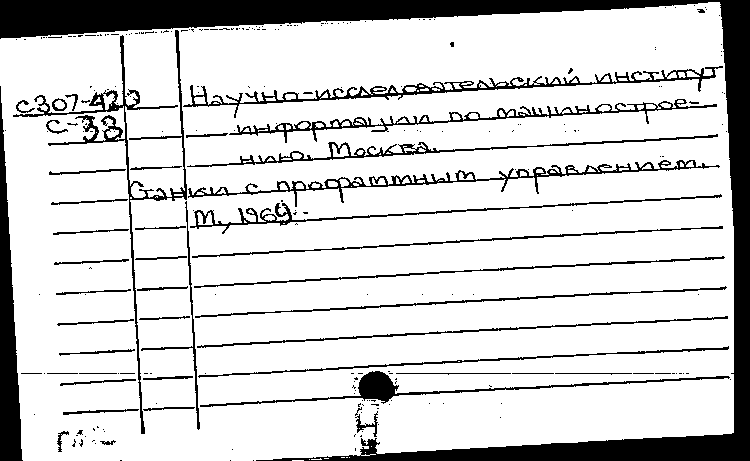 С307-420 Научно-исследовательский институт
С-33 информации по машинострое-
нию. Москва.
Станки с программным управлением.
М., 1969.